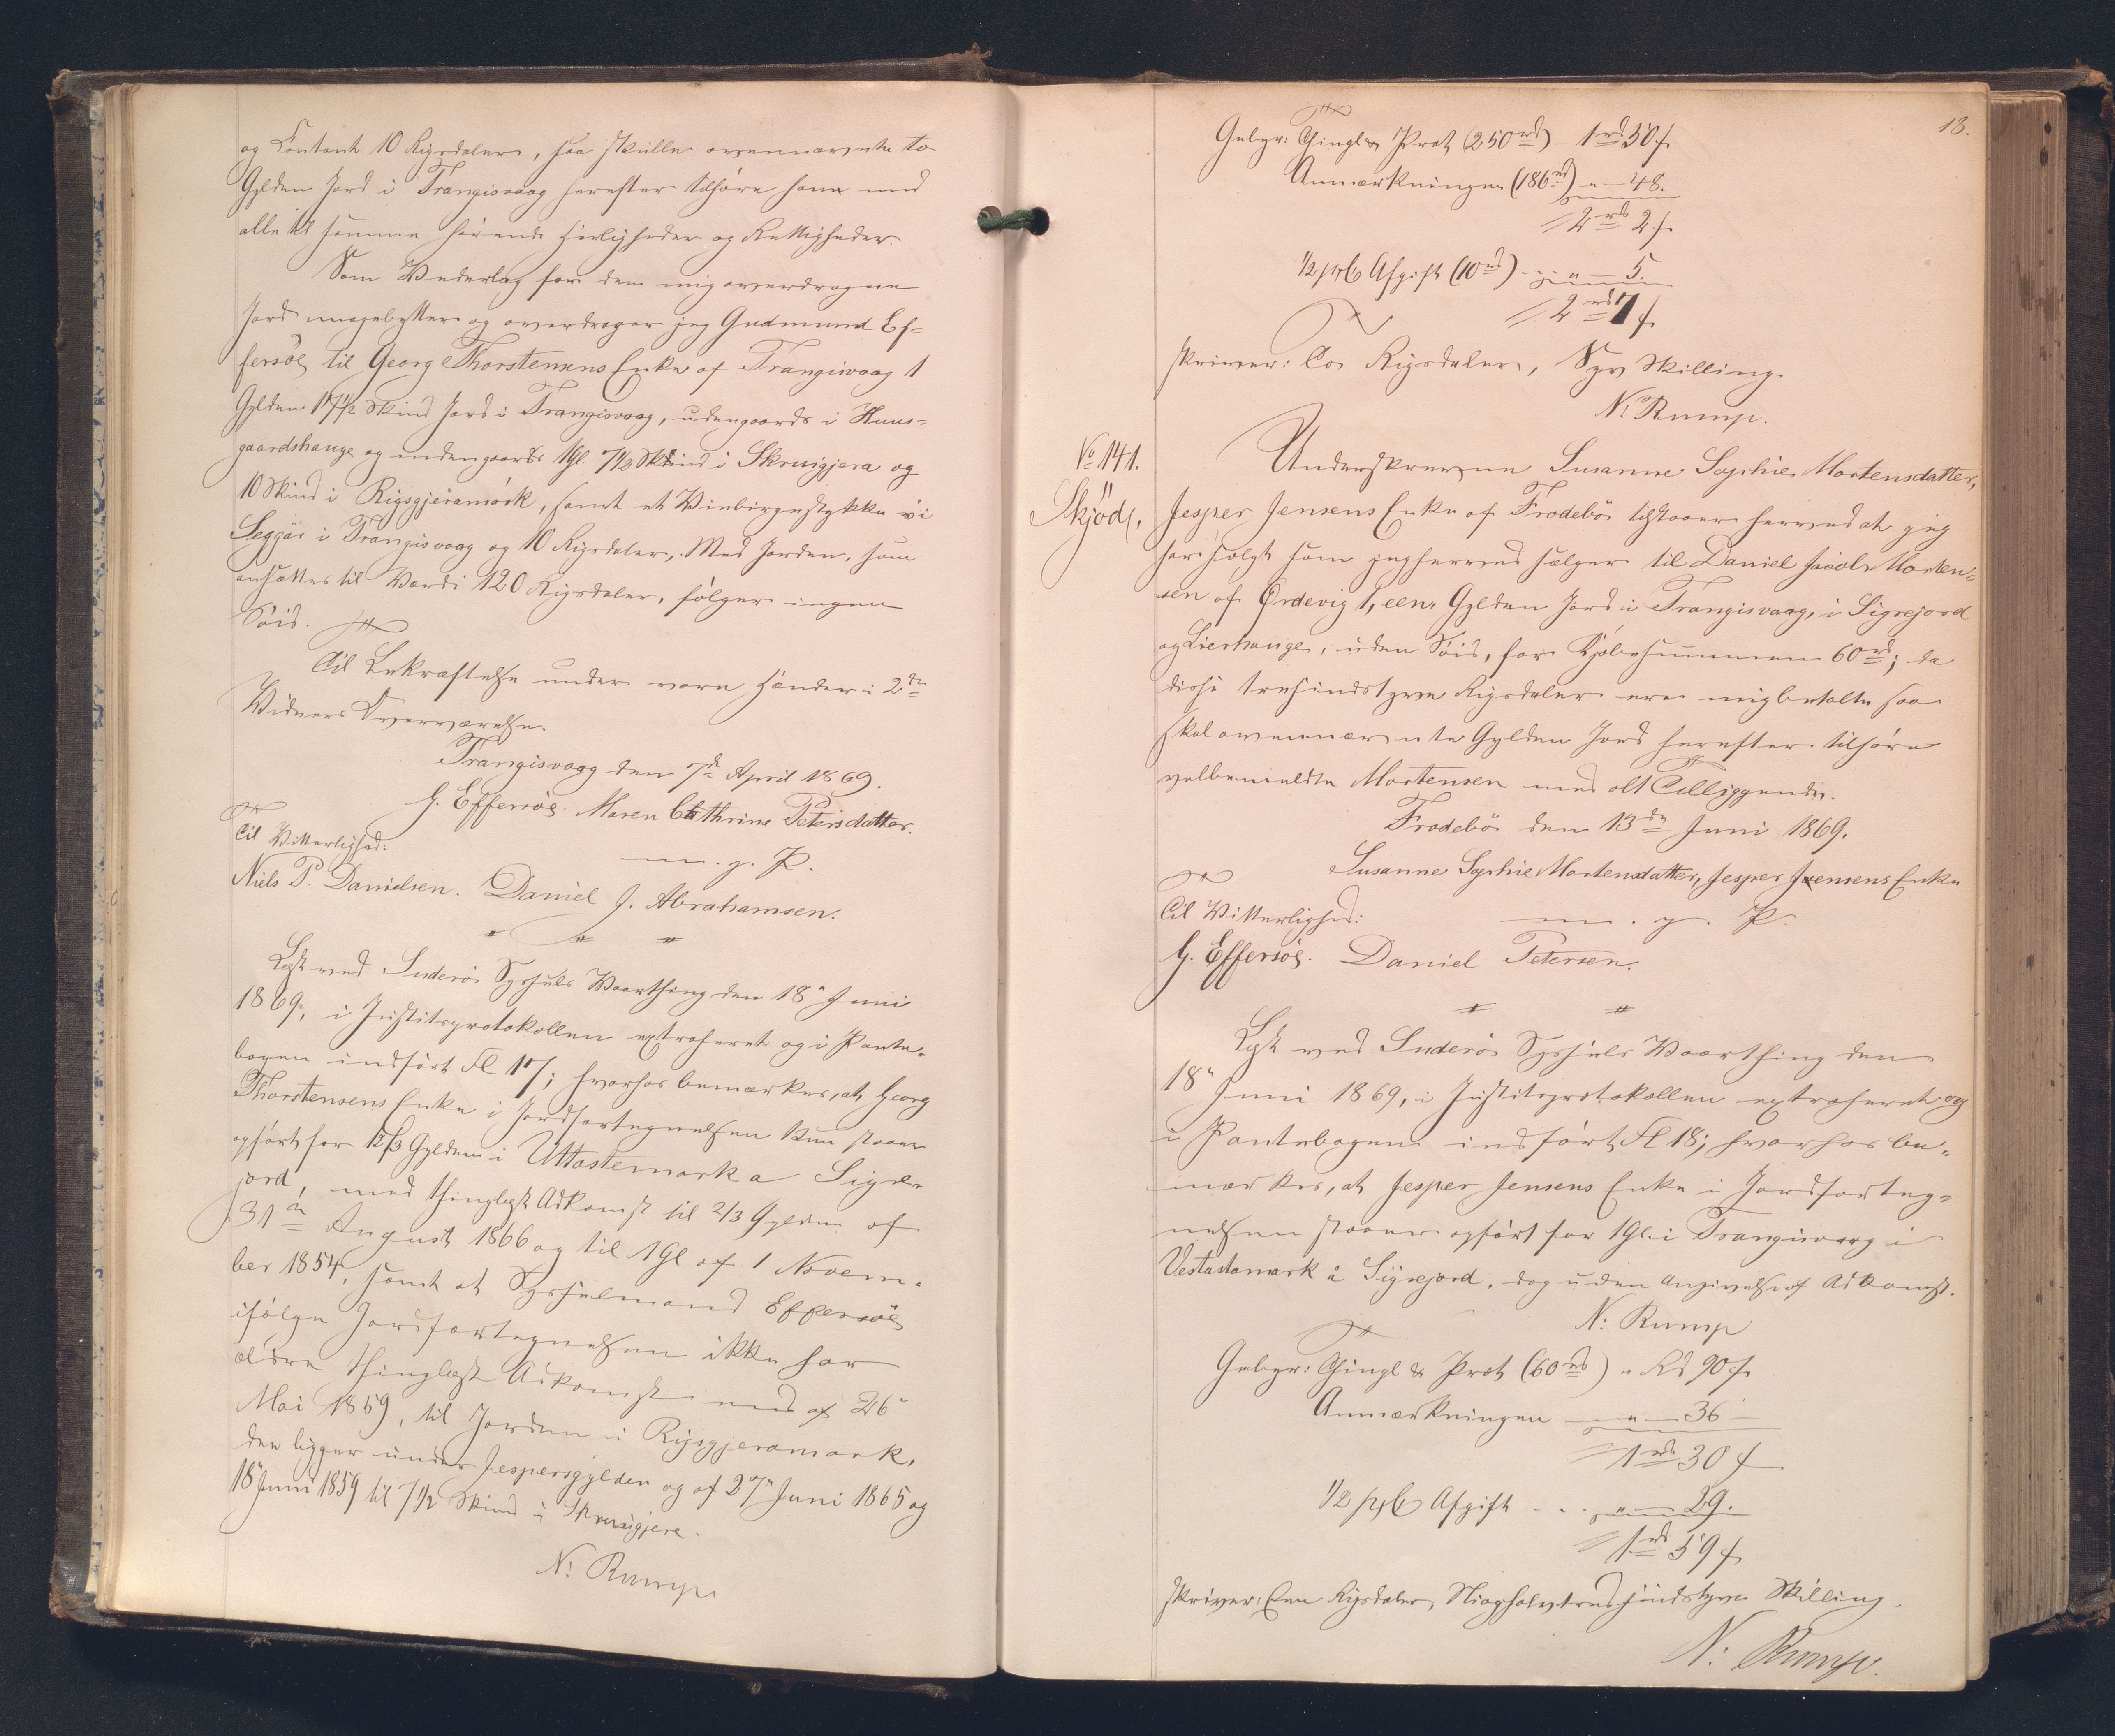 og Contant 10 Rigsdaler, saa skulle ovennævnte to
Gylden Jord i Trangisvaag herefter tilhøre ham med
alle til samme hørende Herligheder og Rettigheder.
Som Vederlag for den mig overdragne
Jord magebytter og overdrager jeg Gudmund Ef-
fersöe til Georg Thorstensens Enke af Trangisvaag 1
Gylden 17 1/2 Skind Jord i Trangisvaag, udengaards i Huus-
gaardshauge og indengaards 1 Gl. 7 1/2 Skind i Skruigjera og
10 Skind i Rigsgjæramörk, samt et Stykke vi
Leggjar i Trangisvaag og 10 Rigsdaler. Med Jorden, som
ansættes til Værdi 120 Rigsdaler, følger ingen
Söid.
Til Bekræftelse under vore Hænder i 2de
Vidners Overværelse.
Trangisvaag den 7de April 1869.
G. Effersöe. Maren Cathrine Petersdatter.
m. g. P.
Til Vitterlighed:
Niels P. Danielsen. Daniel J. Abrahamsen.
Læst ved Suderø Syssels Vaarthing den 18 Juni
1869, i Justitsprotokollen extraheret og i Pante-
bogen indført Fl 17; hvorhos bemærkes, at Georg
Thorstensens Enke i Jordfortegnelsen kun staaer
opført for 1 2/3 Gylden i Uttastemark a Sigre-
jord, med thinglæst Adkomst til 2/3 Gylden af
31te August 1866 og til 1 Gl af 1 Novem-
ber 1854, samt at Sysselmand Effersöe
ifølge Jordfortegnelsen ikke har
ældre thinglæst Adkomst end af 26
Mai 1859, til Jorden i Rigsgjeramark,
der ligger under Jespersgylden og af 27 Juni 1865 og
18 Juni 1859 til 7 1/2 Skind i Skruigjere.
N: Rump
13.
Gebyr: Thingl & Prot (250 rd) - 1 rd 50 s
Anmærkningen (186 rd) " - 48.
2 rd 2 s
1/2 pCt Afgift (10 rd) " - 5.
2 rd 7 s
skriver: To Rigsdaler, Syv Skilling.
N: Rump.
No 141.
Skjöde,
Underskrevne Susanne Sophie Mortensdatter,
Jesper Jensens Enke af Frodebö tilstaaer herved at jeg
har solgt som jeg herved sælger til Daniel Jacob Morten-
sen af Ördevig 1, een, Gylden Jord i Trangisvaag, i Sigrejord
og Lierhauge, uden Söid, for Kjøbesummen 60 rd; da
disse tresindstyve Rigsdaler ere mig betalte saa
skal ovennævnte Gylden Jord herefter tilhøre
velbemeldte Mortensen med alt Tilliggende.
Frodebö den 13de Juni 1869.
Susanne Sophie Mortensdatter, Jesper Jensens Enke
m. g. P.
Til Vitterlighed:
G. Effersöe. Daniel Petersen.
Læst ved Suderø Syssels Vaarthing den
18 Juni 1869, i Justitsprotokollen extraheret og
i Pantebogen indført Fl 18; hvorhos be-
mærkes, at Jesper Jensens Enke i Jordforteg-
nelsen staaer opført for 1 Gl. i Trangisvaag i
Vestastamark å Sigrejord, dog uden Angivelse af Adkomst.
N: Rump
Gebyr: Thingl & Prot (60 rd) " Rd 90 s
Anmærkningen " - 36 -
1 rd 30 s
1/2 pCt Afgift . . . " - 29.
1 rd 59 s
skriver: Een Rigsdaler, Nioghalvtredsindstyve Skilling.
N: Rump.